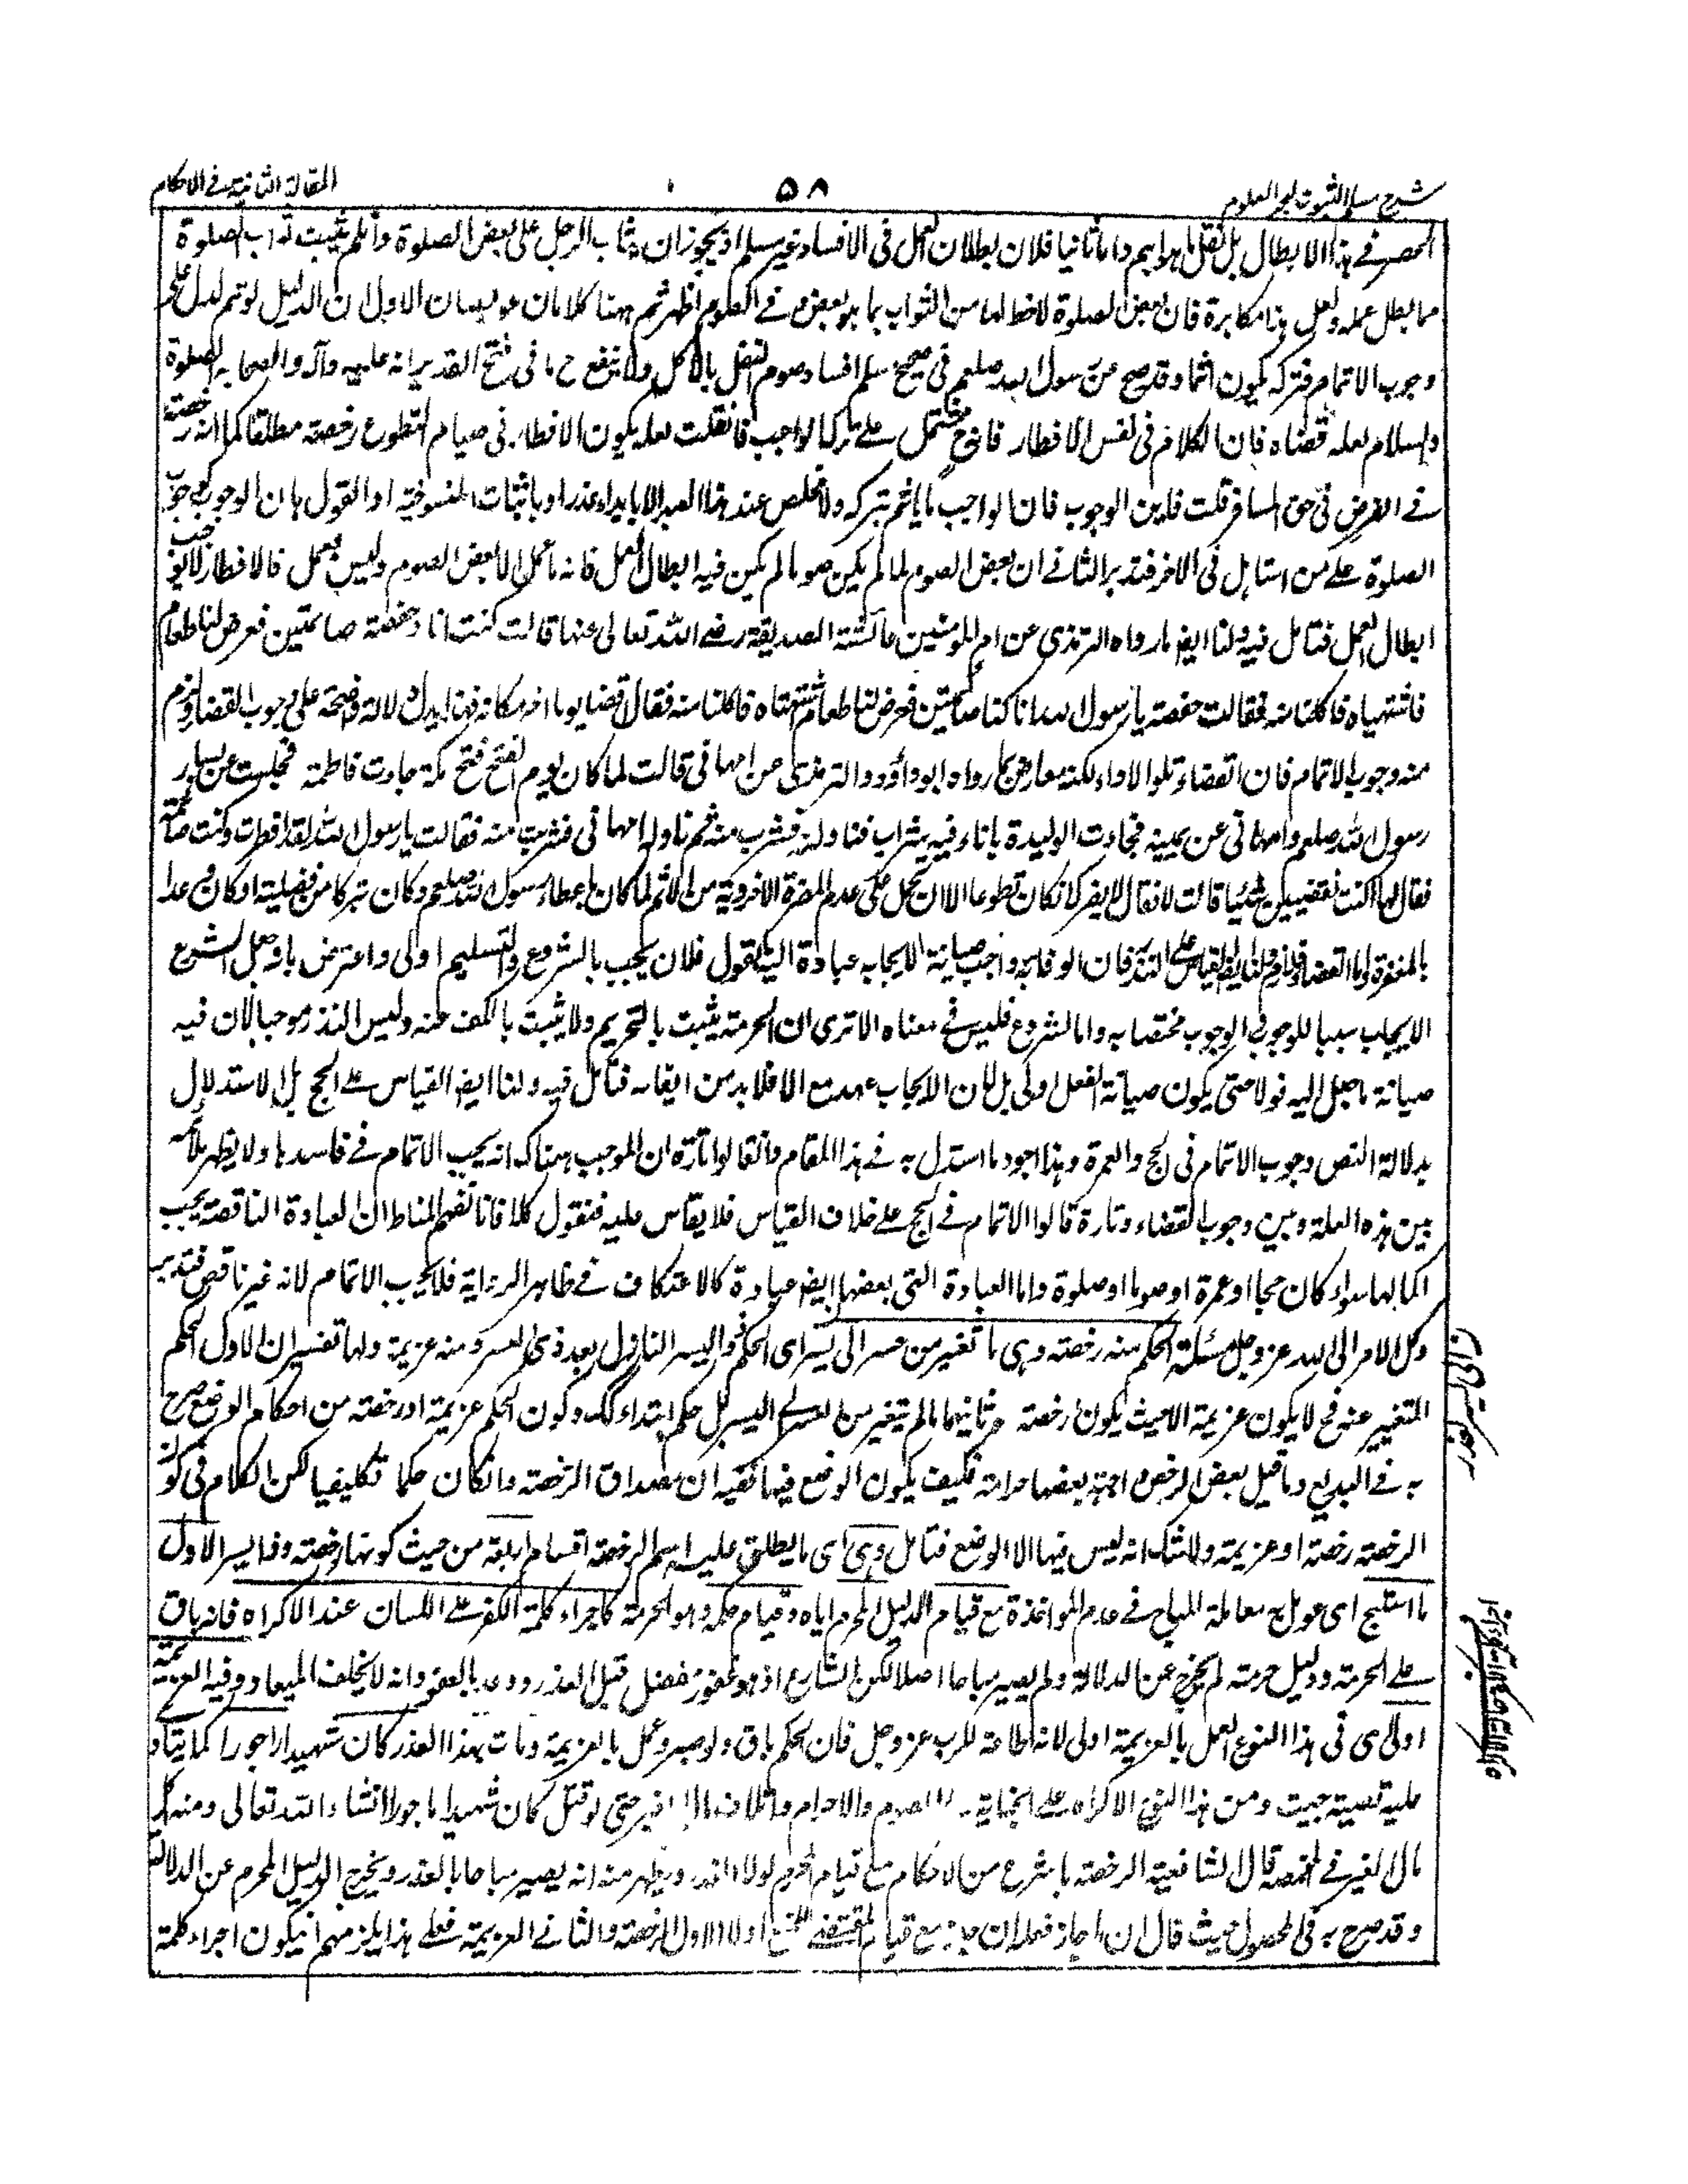 شرح مسلم الثبوت لبحر العلوم
٥٨
المقالة الثانية في الاحكام
الحصر في هذا الابطال بل نقل ما هو اہم واما ثانيا فلان بطلان العمل فى الافساد غير مسلم اذ يجوز ان يثاب الرجل على بعض الصلوة وان لم يثبت ثواب الصلوة
مما بطل عمله ولعل هذا مكابرة فان بعض الصلوة لاحظ لها من الثواب بما هو بعض وفي الصوم اظهر ثم ههنا كلامان عويصان الاول ان الدليل لو تم لدل على
وجوب الاتمام فتركه يكون اثما وقد صح عن رسول الله صلعم فى صحيح مسلم افساد صوم النفل بالاكل ولا ينفع ح ما فى فتح القدير انه عليه وآله واصحابه الصلوة
والسلام لعله قضاه فان الكلام فى نفس الافطار فانه ح مشتمل على ترك الواجب فان قلت لعله يكون الافطار فى صيام التطوع رخصة مطلقا كما انه رخصة
في الفرض فى حق المسافر قلت فاين الوجوب فان الواجب ما يأثم بتركه ولا مخلص عند هذا العبد الا بابداء عذر او باثبات المنسوخية او القول بان الوجوب كوجوب
الصلوة على من استاهل فى الآخر فتدبر الثاني ان بعض الصوم لما لم يكن صوما لم يكن فيه ابطال العمل فانه ما عمل الا بعض الصوم وليس بعمل فالافطار لا يوجب
ابطال العمل فتامل فيه ولنا ايضا ما رواه الترمذى عن ام المومنين عائشة الصديقة رضي الله تعالى عنها قالت كنت انا وحفصة صائمتين فعرض لنا طعام
فاشتهيناه فاكلنا منه فقالت حفصة يا رسول الله انا كنا صائمتين فعرض لنا طعام اشتهيناه فاكلنا منه فقال اقضيا يوما آخر مكانه فهذا يدل دلالة واضحة على وجوب القضاء ولزم
منه وجوب الاتمام فان القضاء تلو الاداء لكنه معارض بما رواه ابو داؤد والترمذى عن ام هانى قالت لما كان يوم الفتح فتح مكة جاءت فاطمة فجلست عن يسار
رسول الله صلعم وام هانى عن يمينه فجاءت الوليدة باناء فيه شراب فناولته فشرب منه ثم ناوله ام هانى فشربت منه فقالت يا رسول الله لقد افطرت وكنت صائمة
فقال لها اكنت تقضين شيئا قالت لا فقال لا يضرك ان كان تطوعا الا ان يحمل على عدم المضرة الاخروية من الاثم لما كان باعطاء رسول الله صلعم وكان تبركا من فضيلته او كان وعدا
بالمغفرة واما القضاء فلازم ولنا ايضا القياس على النذر فان الوفاء به واجب صيانة لايجابه عبادة اليه بقول فلان يجب بالشروع والتسليم اولى واعترض بانه جعل الشرع
الايجاب سببا للوجوب فى الوجوب مختصا به واما الشروع فليس في معناه الا ترى ان الحرمة يثبت بالتحريم ولا يثبت بالكف عنه وليس النذر موجبا لان فيه
صيانة ما جعل اليه قولا حتى يكون صيانة الفعل اولى بل لان الايجاب عهد مع الله فلا بد من ايفائه فتامل فيه ولنا ايضا القياس على الحج بل الاستدلال
بدلالة النص وجوب الاتمام فى الحج والعمرة وهذا اجود ما استدل به في هذا المقام فقالوا تارة ان الموجب هناك انه يجب الاتمام في فاسدها ولا يظهر ملائمة
بين هذه العلة وبين وجوب القضاء وتارة قالوا الاتمام في الحج على خلاف القياس فلا يقاس عليه فنقول كلا فانا نفهم المناط ان العبادة الناقصة يجب
اكمالها سواء كان حجا او عمرة او صوما او صلوة واما العبادة التى بعضها ايضا عبادة كالاعتكاف في ظاهر الرواية فلا يجب الاتمام لانه غير ناقص فتدبر
وكل الامر الى الله عز وجل مسئلة الحكم منه رخصة وهى ما تغير من عسر الى يسر اى الحكم ذو اليسر النازل بعد ذى العسر ومنه عزيمة ولها تفسيران الاول الحكم
المتغير عنه فح لا يكون عزيمة الا حيث يكون رخصة وثانيهما ما لم يتغير من العسر الى اليسر بل حكم ابتداء كذلك وكون الحكم عزيمة او رخصة من احكام الوضع صرح
به في البديع وما قيل بعض الرخص واجبة بعضها حرامة فكيف يكون الوضع فيها ففيه ان مصداق الرخصة وان كان حكما تكليفيا لكن الكلام فى كون
الرخصة رخصة او عزيمة ولا شك انه ليس فيها الا الوضع فتامل وهى اى ما يطلق عليه اسم الرخصة اقسام اربعة من حيث كونها رخصة وذا يسر الاول
ما استبيح اى عومل مع معاملة المباح في عدم المواخذة مع قيام الدليل المحرم اياه وقيام حكمه وهو الحرمة كاجراء كلمة الكفر على اللسان عند الاكراه فانه باق
على الحرمة ودليل حرمته لم يخرج عن الدلالة ولم يصير مباحا اصلا لكن الشارع اذ هو غفور مفضل قبل العذر ووعد بالعفو وانه لا يخلف الميعاد وفيه العزيمة
اولى اى فى هذا النوع العمل بالعزيمة اولى لانه اطاعة للرب عز وجل فان الحكم باق ولو صبر وعمل بالعزيمة ومات بهذا العذر كان شهيدا ماجورا كما يتادى
عليه قصة خبيب ومن هذا النوع الاكراه على الجناية الصوم والاحرام واتلاف مال الغير حتى لو قتل كان شهيدا ماجورا انشاء الله تعالى ومنه اكل
مال الغير في المخمصة قال الشافعية الرخصة ما شرع من الاحكام مع قيام المحرم لولا العذر ويظهر منه انه يصير مباحا بالعذر ويخرج الدليل المحرم عن الدلالة
وقد صرح به فى المحصول حيث قال ان ما جاز فعله ان جاز مع قيام المقتضي للمنع اولا الاول الرخصة والثاني العزيمة فعلى هذا يلزمهم ان يكون اجراء كلمة